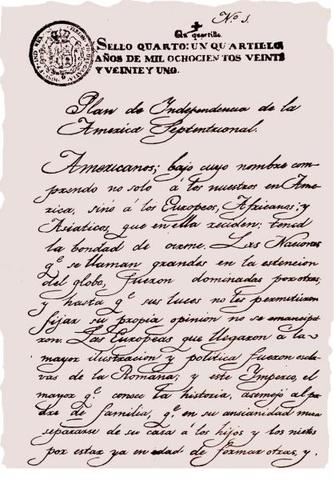 Nº 1.
Un quartillo
SELLO QUARTO: UN QUARTILLO,
AÑOS DE MIL OCHOCIENTOS VEINTE
Y VEINTE Y UNO.
Plan de Independencia de la
America Septentrional.
Americanos; bajo cuyo nombre com-
prendo no solo á los nuestros en Ame-
rica, sinó á los Europeos, Africanos; y
Asiaticos, que en ella reciden: tened
la bondad de oirme. Las Naciones
qᵉ se llaman grandes en la estencion
del globo, fueron dominadas por otras,
y hasta qᵉ sus luces no les permitieron
fijar su propia opinion no se emancipa-
ron. Las Europeas que llegaron á la
mayor ilustracion y política fueron escla-
vas de la Romana; y este Imperio, el
mayor qᵉ conoce la historia, asemejó al pa-
dre de familia, qᵉ en su ancianidad mira
separarse de su casa á los hijos y los nietos
por estar ya en edad de formar otras, y